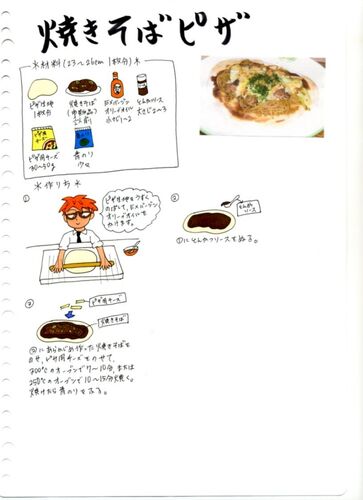 焼きそばピザ
*材料(23〜26cm 1枚分)*
ピザ生地
1枚分
焼きそば
(市販品)
EXバージン
オリーブオイル
小さじ1〜2
とんかつソース
大さじ2〜3
ピザ用チーズ
青のり
少々
*作り方*
①
ピザ生地をうすく
のばして、EXバージン
オリーブオイルを
かけます。
②
とんかつ
ソース
①にとんかつソースをぬる。
③
ピザ用チーズ
焼きそば
②にあらかじめ作った焼きそばを
のせ、ピザ用チーズをのせて、
300℃のオーブンで7〜10分、または
250℃のオーブンで10〜15分焼く。
焼けたら青のりをふる。